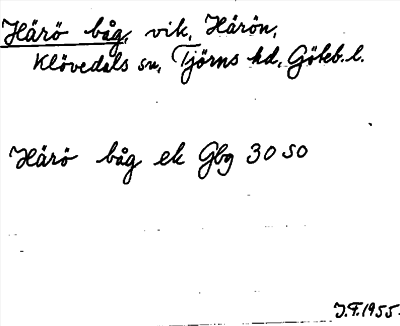 Härö båg, vik, Härön,
Klövedals sn, Tjörns hd, Göteb. l.
Härö båg ek Gbg 30 SO
J.F. 1955.